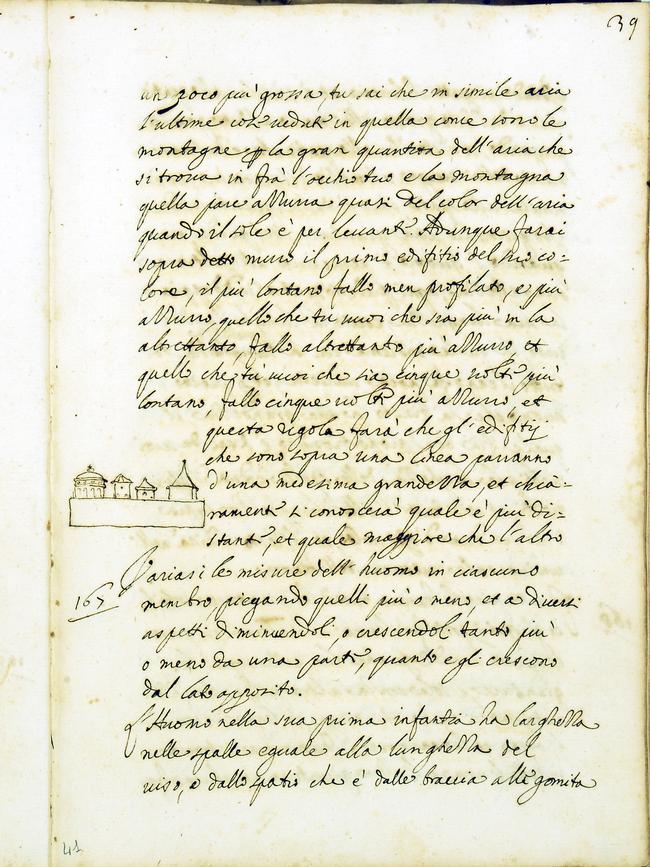 39
un poco piu' grossa, tu sai che in simile aria
l'ultime cose vedute in quella come sono le
montagne p la gran quantita dell'aria che
si trova in frà l'occhio tuo e la montagna
quella pare azzurra quasi del color dell'aria
quando il sole è per levante. Adunque farai
sopra detto muro il primo edifitio del suo co=
lore, il piu' lontano fallo men profilato, e piu'
azzurro, quello che tu vuoi che sia piu' in la
altrettanto, fallo altrettanto piu' azzurro et
quello che tu vuoi che sia cinque volte piu'
lontano, fallo cinque volte piu' azzurro, et
questa regola farà che gl'edifitij
che sono sopra una linea parranno
d'una medesima grandezza, et chia=
ramente si conoscerà quale è piu' di=
stante, et quale maggiore che l'altro
Variasi le misure dell'huomo in ciascuno
167
membro, piegando quelli piu' o meno, et a diversi
aspetti diminuendoli, o crescendoli tanto piu'
o meno da una parte, quanto egli crescono
dal lato opposito.
L'Huomo nella sua prima infantia ha larghezza
nelle spalle eguale alla lunghezza del
viso, e dallo spatio che è dalle braccia alle gomita
41